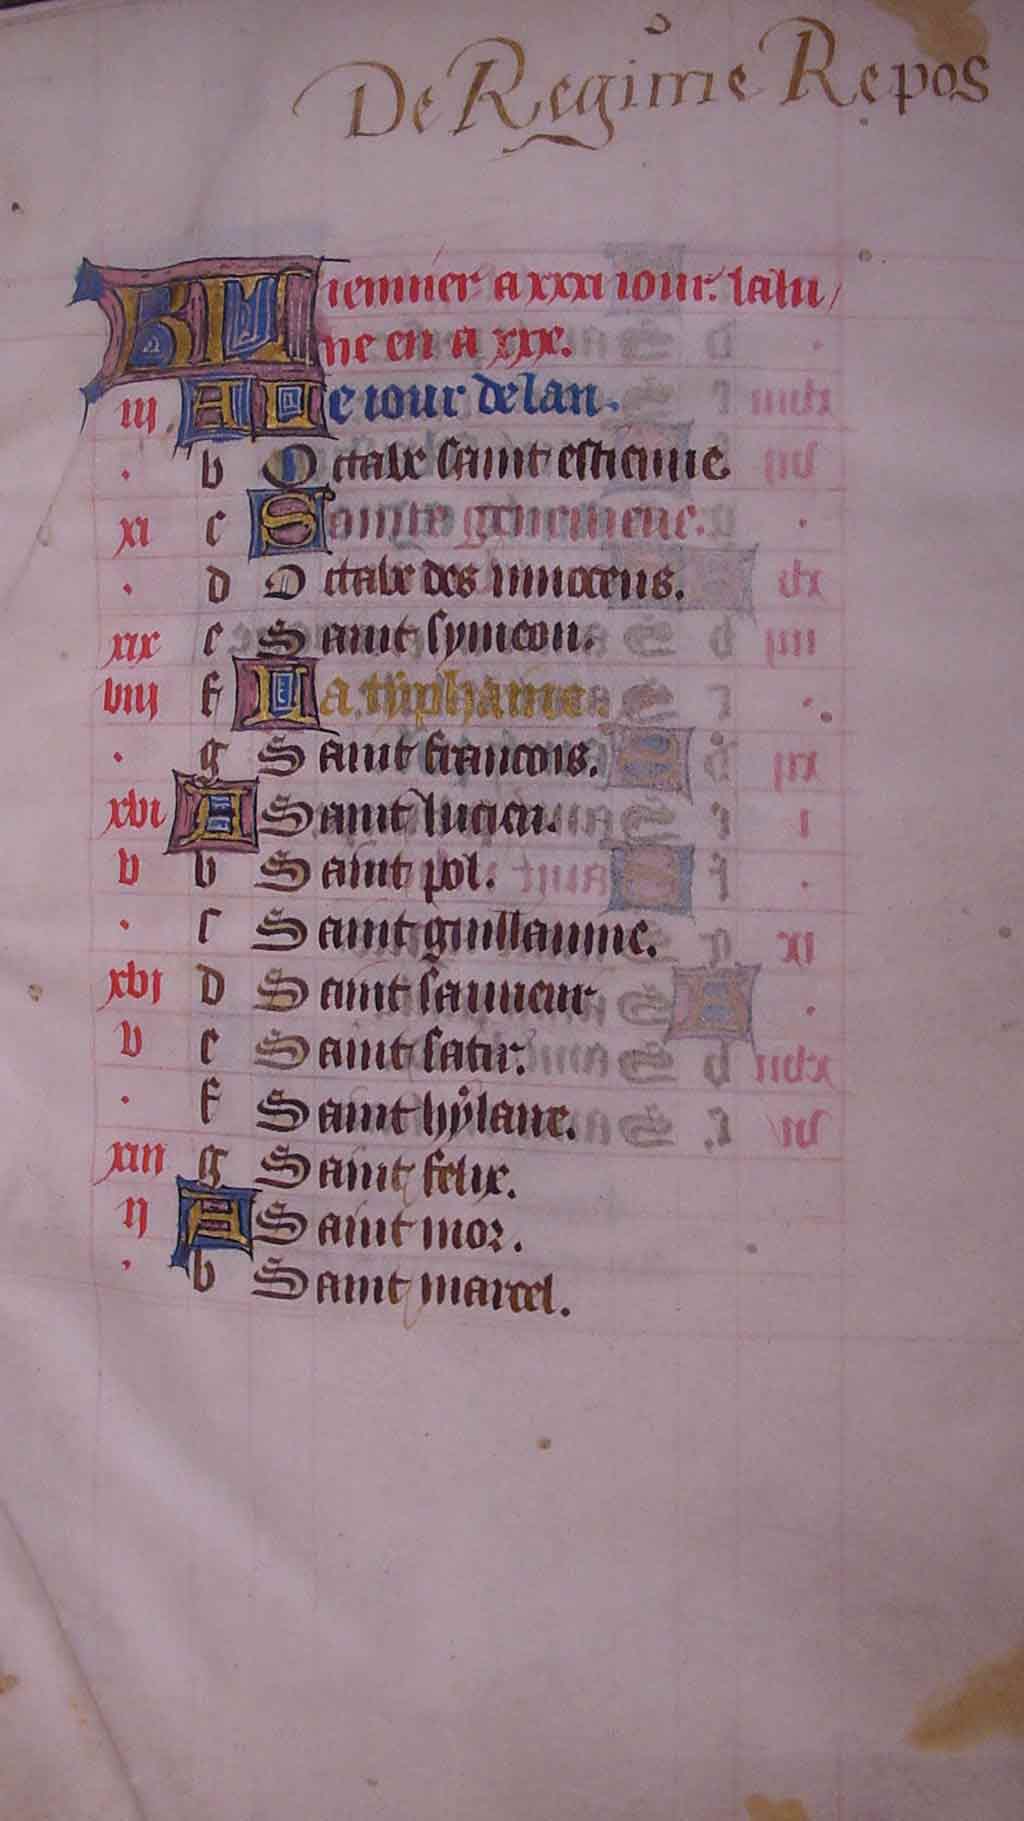 De Regime Repos
KL Ienuier a xxxi iour. la lu
ne en a xxx.
iii A Le iour de lan.
. b Octabe saint estienne
xi c Sainte geneuieue.
. d Octabe des innocens.
xix e Saint symeon.
viii f La typhaine.
. g Saint francois.
xvi A Saint lucien.
v b Saint pol.
. c Saint guillaume.
xvi d Saint sauueur
v e Saint satir.
. f Saint hylare.
xiii g Saint felix.
ii A Saint mor.
. b Saint marcel.